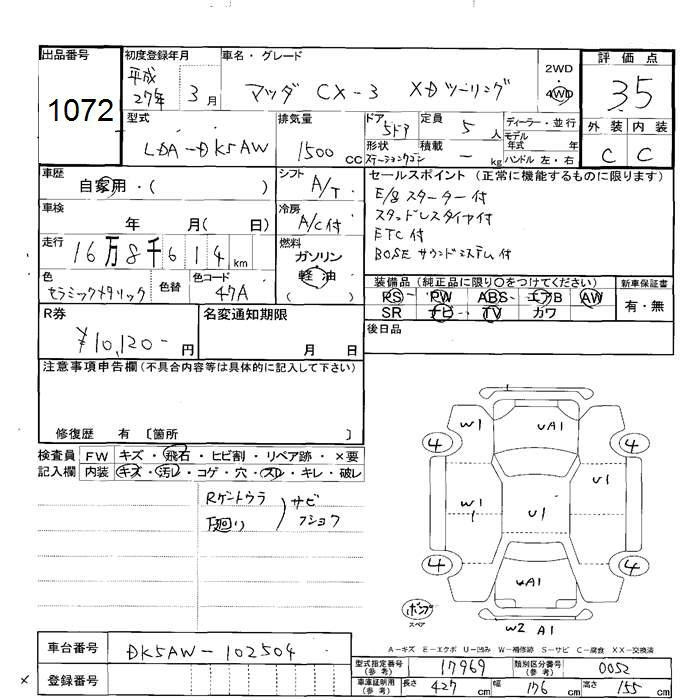 出品番号
1072
初度登録年月
平成
27年 3月
車名・グレード
マツダ CX-3 XDツーリング
2WD
4WD
評価点
35
外装 内装
C C
型式
LDA-DK5AW
排気量
1500 cc
ドア
5ドア
形状
ステーションワゴン
定員 5 人
積載 - kg
ディーラー・並行
モデル
年式 年
ハンドル 左・右
車歴
自家用・( )
シフト
A/T
車検
年 月( 日)
冷房
A/C付
走行
16万8千614 km
燃料
ガソリン
軽油
( )
色
セラミックメタリック
色替
色コード
47A
セールスポイント (正常に機能するものに限ります)
E/g スターター付
スタッドレスタイヤ付
ETC付
BOSE サウンドシステム付
装備品 (純正品に限り〇をつけてください)
PS PW ABS エアB AW
SR ナビ TV カワ
新車保証書
有・無
R券
¥10,120- 円
名変通知期限
月 日
後日品
注意事項申告欄 (不具合内容等は具体的に記入して下さい)
修復歴 有 〔箇所 〕
検査員
記入欄
FW キズ・飛石・ヒビ割・リペア跡・×要
内装 キズ・汚レ・コゲ・穴・スレ・キレ・破レ
Rゲートウラ
下廻り
サビ
フショク
W1 UA1
4 4
W1 U1 U1
4 4
UA1
ポンプ
スペア
W2 A1
A-キズ E-エクボ U-凹み W-補修跡 S-サビ C-腐食 XX-交換済
車台番号
DK5AW-102504
登録番号
×
型式指定番号
(参考)
17969
類別区分番号
(参考)
0052
車庫証明用
(参考)
長さ 427 cm 幅 176 cm 高さ 155 cm